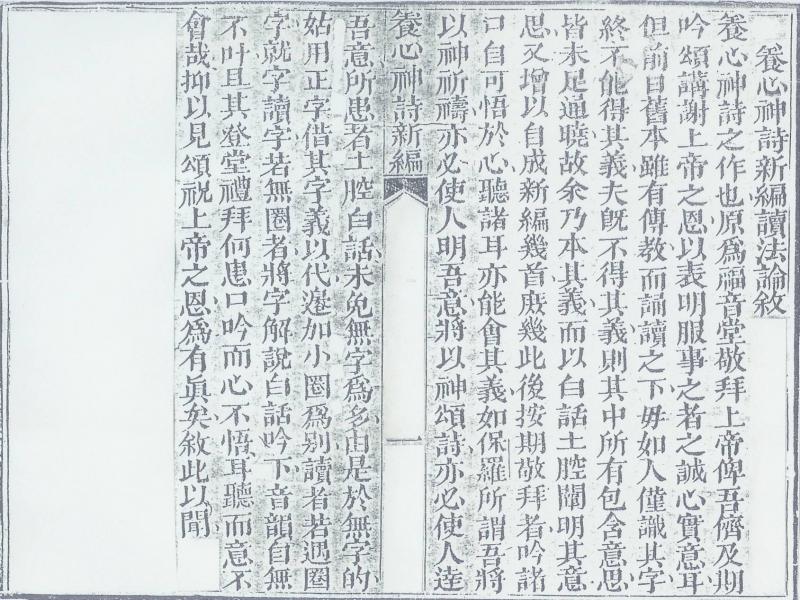 養心神詩新編讀法論敘
養心神詩之作也原爲福音堂敬拜上帝俾吾儕及期
吟頌講謝上帝之恩以表明服事之者之誠心實意耳
但前日舊本雖有傳教而誦讀之下毋如人僅識其字
終不能得其義夫旣不得其義則其中所有包含意思
皆未足通曉故余乃本其義而以白話土腔闡明其意
思又增以自成新編幾首庶幾此後按期敬拜者吟諸
口自可悟於心聽諸耳亦能會其義如保羅所謂吾將
以神祈禱亦必使人明吾意將以神頌詩亦必使人達
養心神詩新編 一
吾意所患者土腔白話未免無字爲多由是於無字的
姑用正字借其字義以代邊加小圈爲別讀者若遇圈
字就字讀字若無圈者將字解說白話吟下音韻自無
不叶且其登堂禮拜何患口吟而心不悟耳聽而意不
會哉抑以見頌祝上帝之恩爲有眞矣敘此以聞